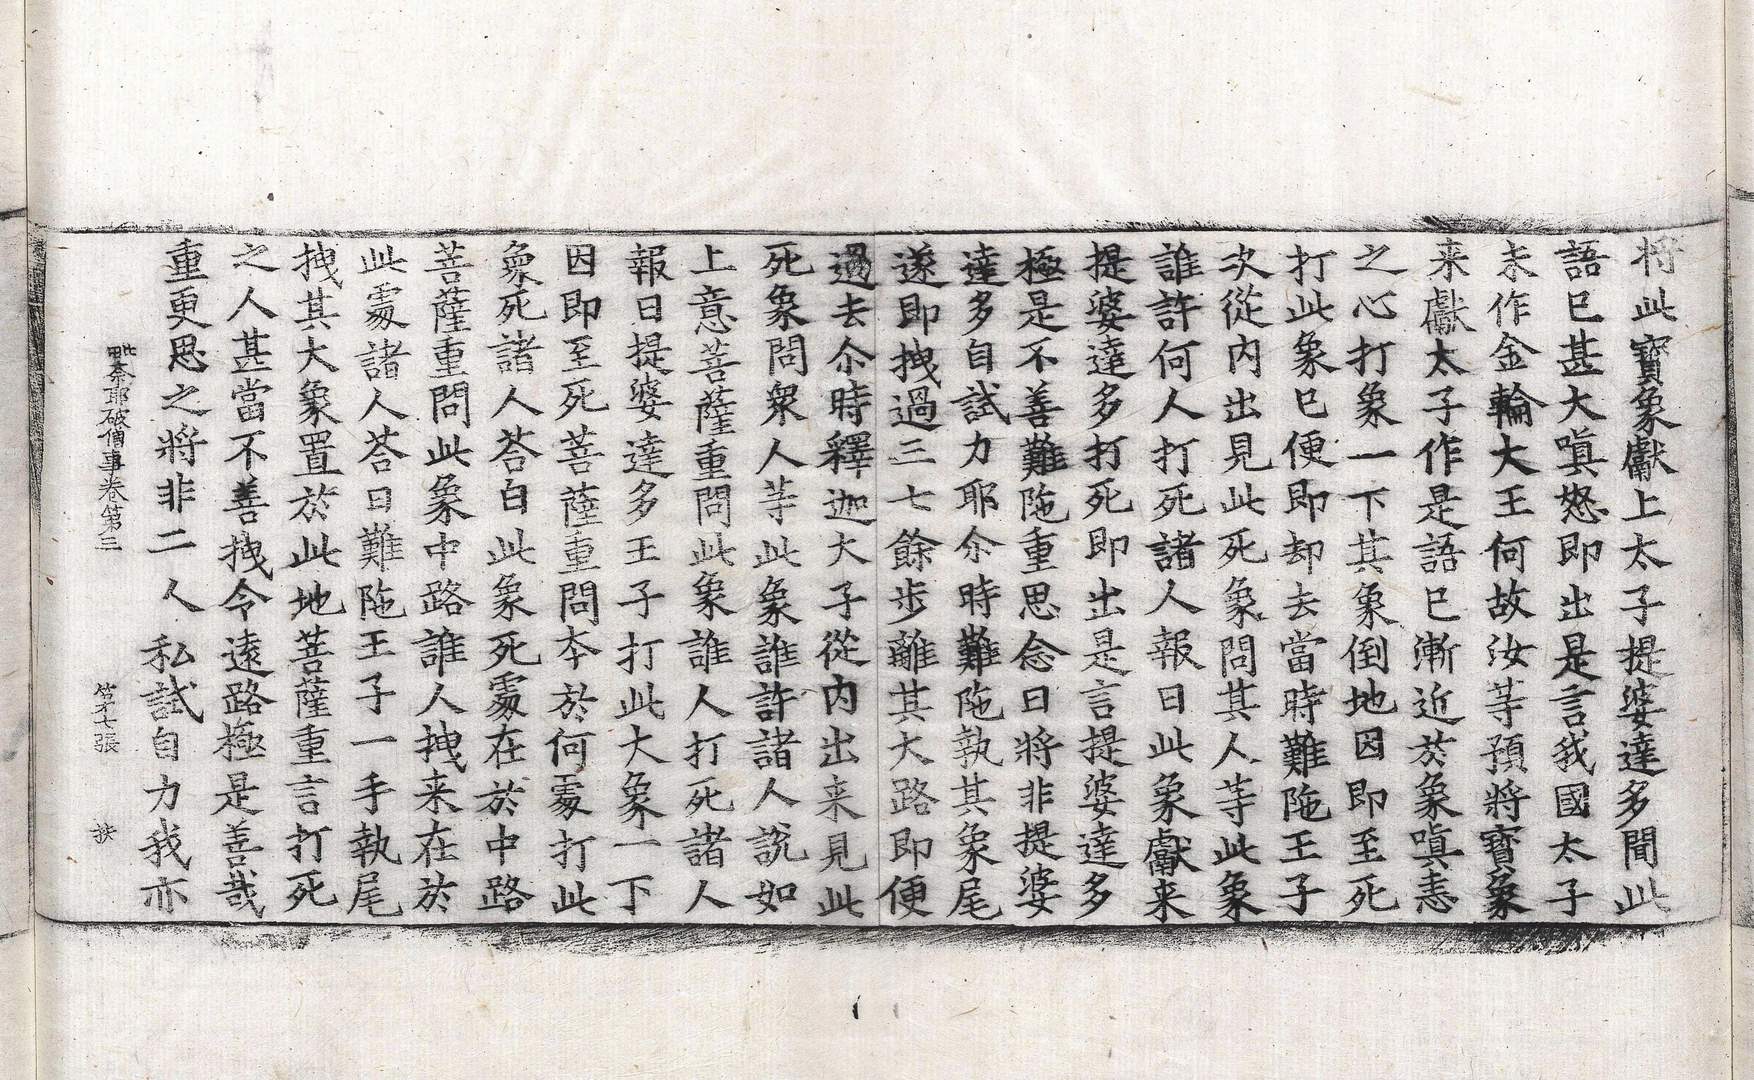 将此寶象獻上太子提婆達多聞此
語已甚大嗔怒即出是言我國太子
未作金輪大王何故汝等預將寶象
来獻太子作是語已漸近於象嗔恚
之心打象一下其象倒地因即至死
打此象已便即却去當時難陁王子
次從内出見此死象問其人等此象
誰許何人打死諸人報曰此象獻来
提婆達多打死即出是言提婆達多
極是不善難陁重思念曰將非提婆
達多自試力耶尒時難陁執其象尾
遂即拽過三七餘步離其大路即便
過去尒時釋迦大子從内出来見此
死象問衆人等此象誰許諸人說如
上意菩薩重問此象誰人打死諸人
報曰提婆達多王子打此大象一下
因即至死菩薩重問本於何處打此
象死諸人荅白此象死處在於中路
菩薩重問此象中路誰人拽来在於
此處諸人荅曰難陁王子一手執尾
拽其大象置於此地菩薩重言打死
之人甚當不善拽令遠路極是善哉
重更思之將非二人私試自力我亦
毗奈耶破僧事卷第三 第七張 扶